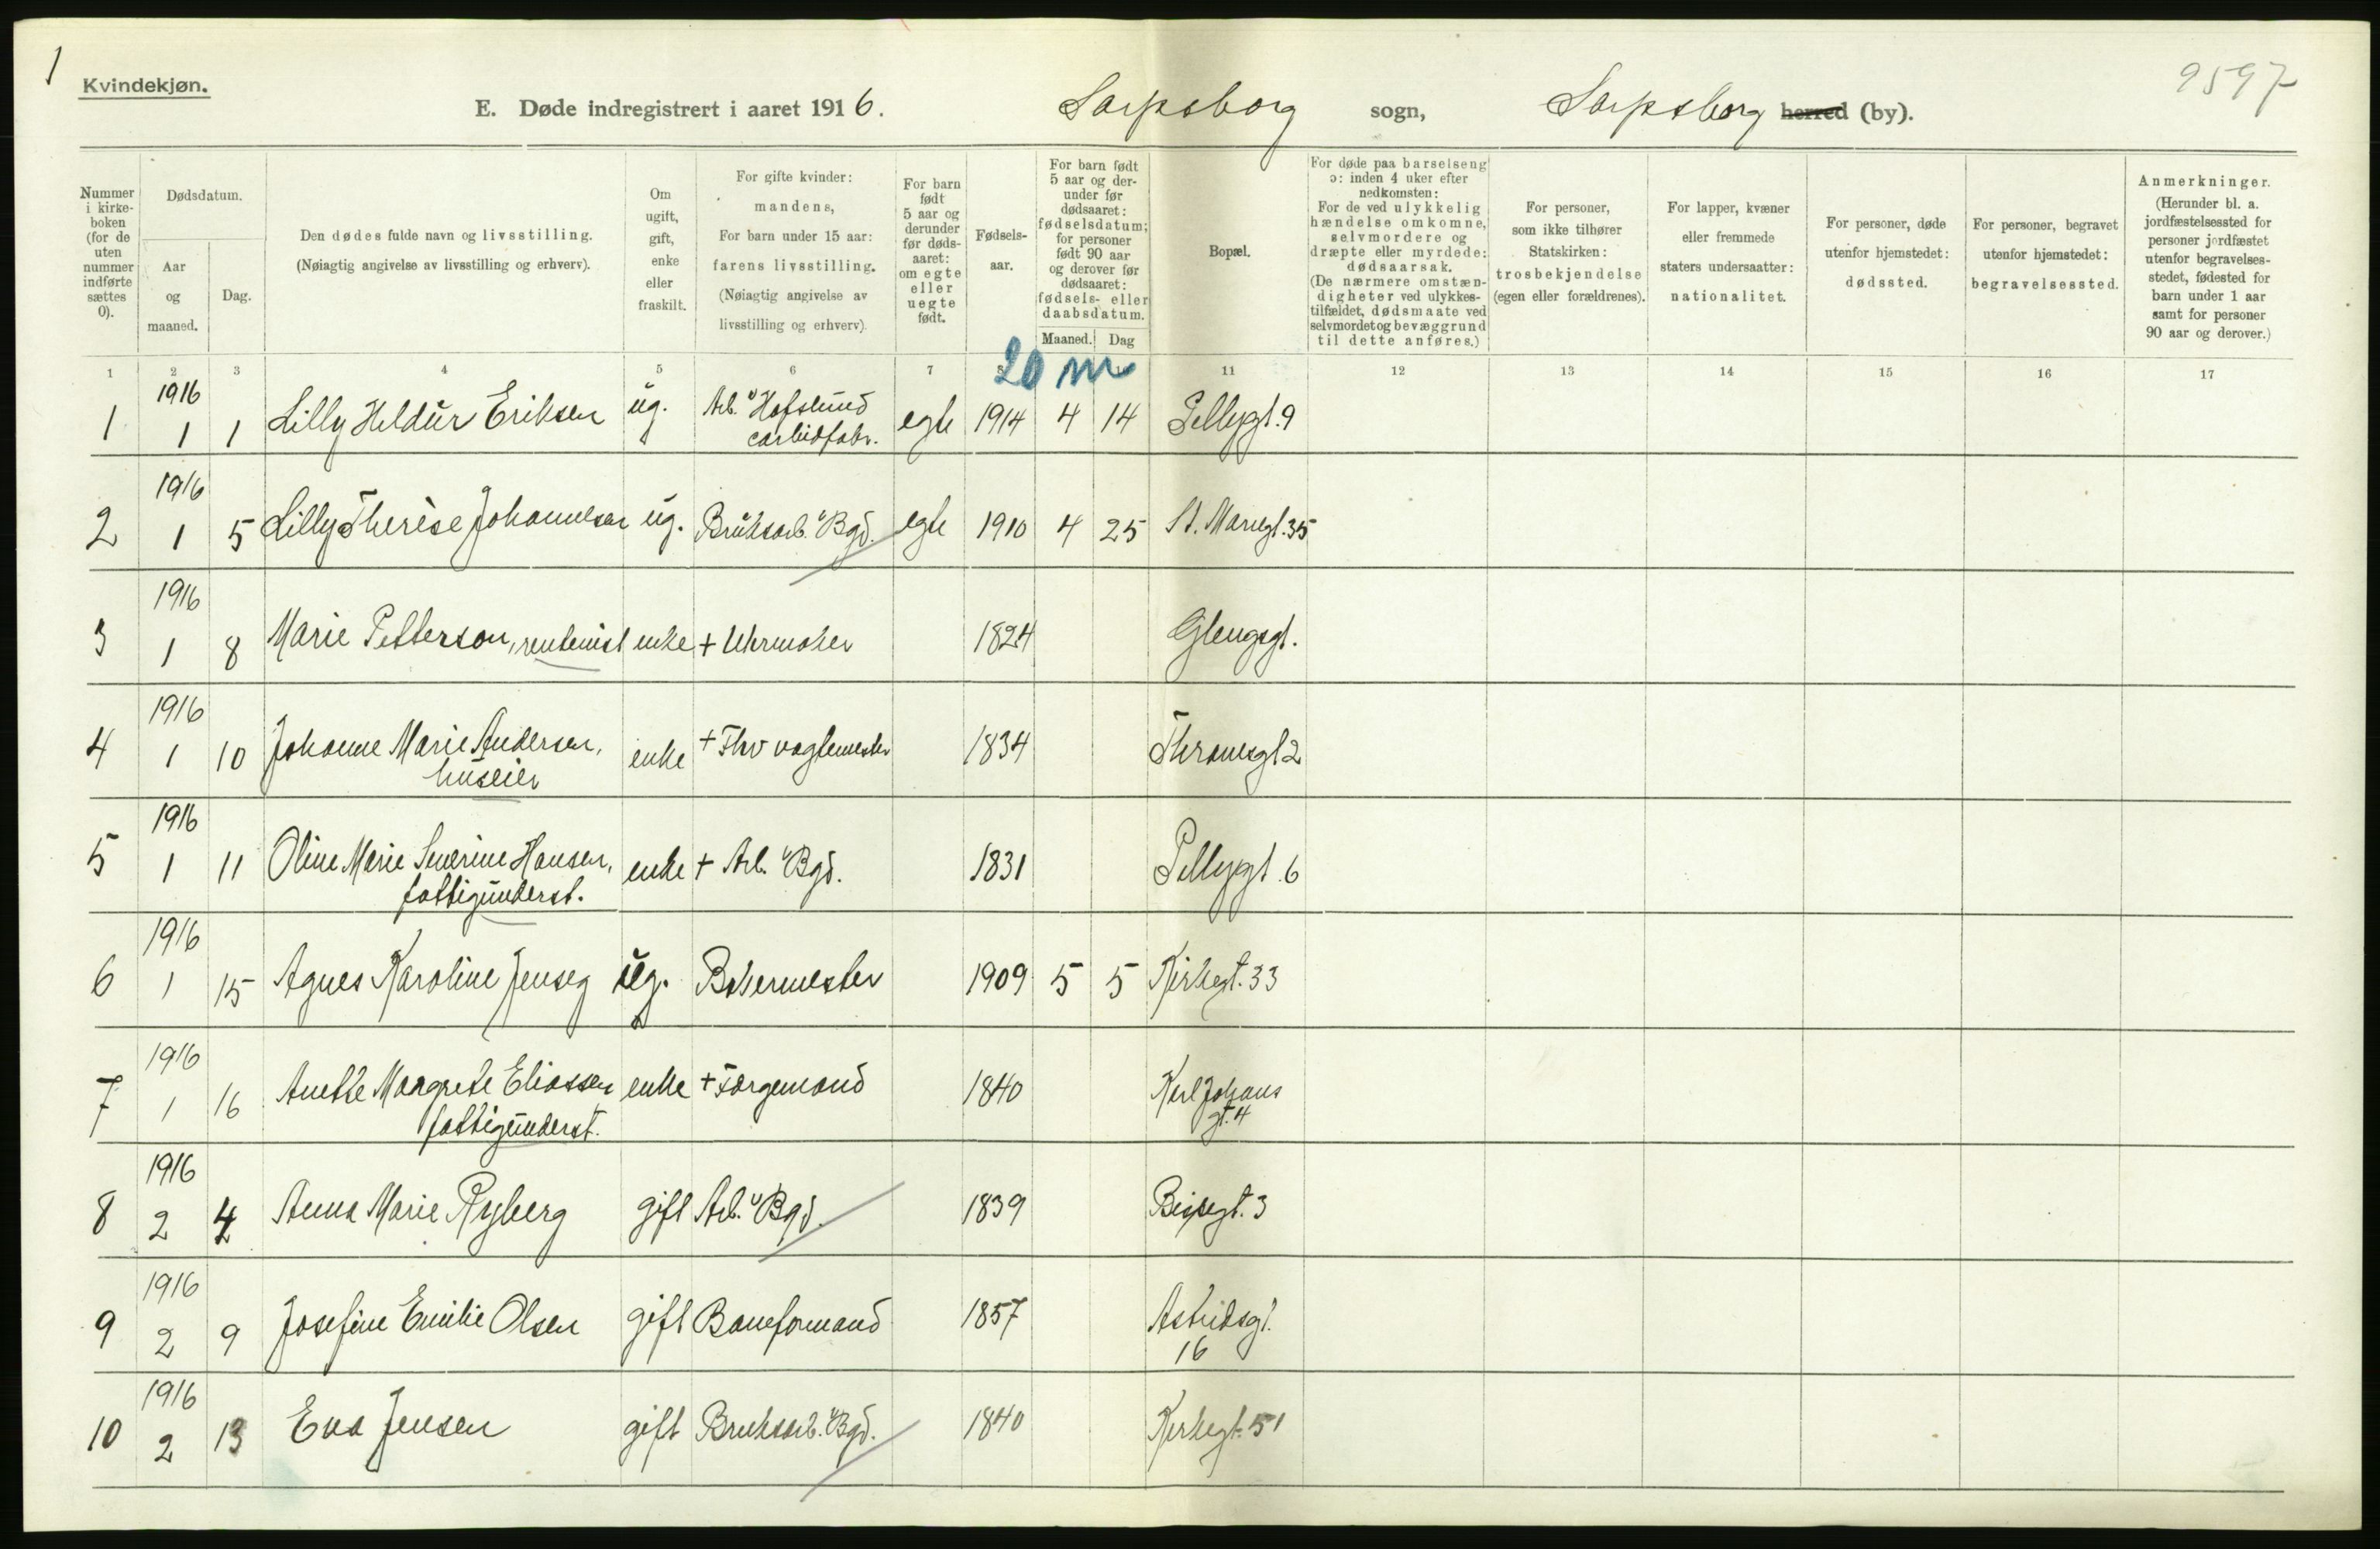 1
Kvindekjøn.
9597
E. Døde indregistrert i aaret 1916. Sarpsborg sogn, Sarpsborg herred (by).
Nummer i kirke-boken (for de uten nummer indførte sættes 0).
Dødsdatum.
Aar og maaned.
Dag.
Den dødes fulde navn og livsstilling.
(Nøiagtig angivelse av livsstilling og erhverv).
Om ugift, gift, enke eller fraskilt.
For gifte kvinder:
mandens,
For barn under 15 aar:
farens livsstilling.
(Nøiagtig angivelse av
livsstilling og erhverv).
For barn født 5 aar og derunder før døds-aaret: om egte eller uegte født.
Fødsels-aar.
For barn født 5 aar og der-under før dødsaaret: fødselsdatum; for personer født 90 aar og derover før dødsaaret: fødsels- eller daabsdatum.
Maaned. Dag
Bopæl.
For døde paa barselseng
ɔ: inden 4 uker efter
nedkomsten:
For de ved ulykkelig
hændelse omkomne,
selvmordere og
dræpte eller myrdede:
dødsaarsak.
(De nærmere omstæn-
digheter ved ulykkes-
tilfældet, dødsmaate ved
selvmordet og bevæggrund
til dette anføres.)
For personer,
som ikke tilhører
Statskirken:
trosbekjendelse
(egen eller forældrenes).
For lapper, kvæner
eller fremmede
staters undersaatter:
nationalitet.
For personer, døde
utenfor hjemstedet:
dødssted.
For personer, begravet
utenfor hjemstedet:
begravelsessted.
Anmerkninger.
(Herunder bl. a.
jordfæstelsessted for
personer jordfæstet
utenfor begravelses-
stedet, fødested for
barn under 1 aar
samt for personer
90 aar og derover.)
1 2 3 4 5 6 7 8 11 12 13 14 15 16 17
20 m
1 1916 1 1 Lilly Heldur Eriksen ug. Arb. v Hafslund carbidfabr. egte 1914 4 14 Pellygt. 9
2 1916 1 5 Lilly Therèse Johannesen ug. Bruksarb. v Bgd. egte 1910 4 25 St. Mariegt. 35
3 1916 1 8 Marie Petterson, rentenist enke + Uhrmaker 1824 Glengsgt.
4 1916 1 10 Johanne Marie Andersen, huseier enke + Fhv vagtmester 1834 Thranesgt 2
5 1916 1 11 Oline Marie Severine Hansen, fattigunderst. enke + Arb. v Bgd. 1831 Pellygt. 6
6 1916 1 15 Agnes Karoline Jenseg ug. Bakermester 1909 5 5 Kirkegt. 33
7 1916 1 16 Anette Margrete Eliassen fattigunderst. enke + Færgemand 1840 Karl Johans gt. 4
8 1916 2 4 Anna Marie Ryberg gift Arb. v Bgd. 1839 Bispegt. 3
9 1916 2 9 Josefine Emilie Olsen gift Baneformand 1857 Astridsgt. 16
10 1916 2 13 Eva Jensen gift Bruksarb. v Bgd. 1840 Kirkegt. 51